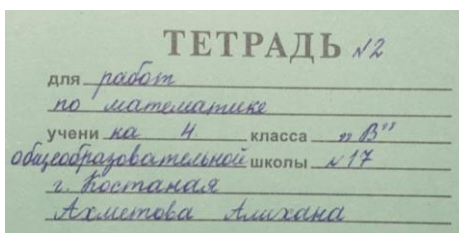 ТЕТРАДЬ №2
для работ
по математике
ученика 4 класса „В"
общеобразовательной школы №17
г. Костаная
Ахметова Алихана